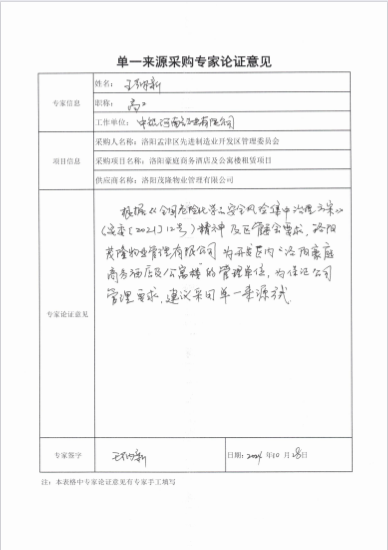 单一来源采购专家论证意见
专家信息
姓名：
职称：高工
工作单位：中
有限公司
项目信息
采购人名称：洛阳孟津区先进制造业开发区管理委员会
采购项目名称：洛阳豪庭商务酒店及公寓楼租赁项目
供应商名称：洛阳茂隆物业管理有限公司
专家论证意见
根据《全国危险化学品安全风险集中治理方案》
（安委〔2021〕12号）精神及区管委会要求，洛阳
茂隆物业管理有限公司为开发区内"洛阳豪庭
商务酒店及公寓楼"的管理单位，为保证公司
管理要求，建议采用单一来源
专家签字
日期：2024年10月28日
注：本表格中专家论证意见有专家手工填写